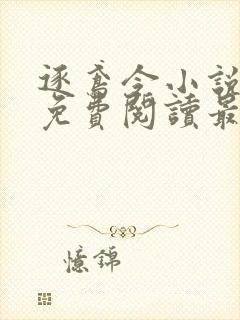 逐鸢令小說
免費閱讀最
憶錦